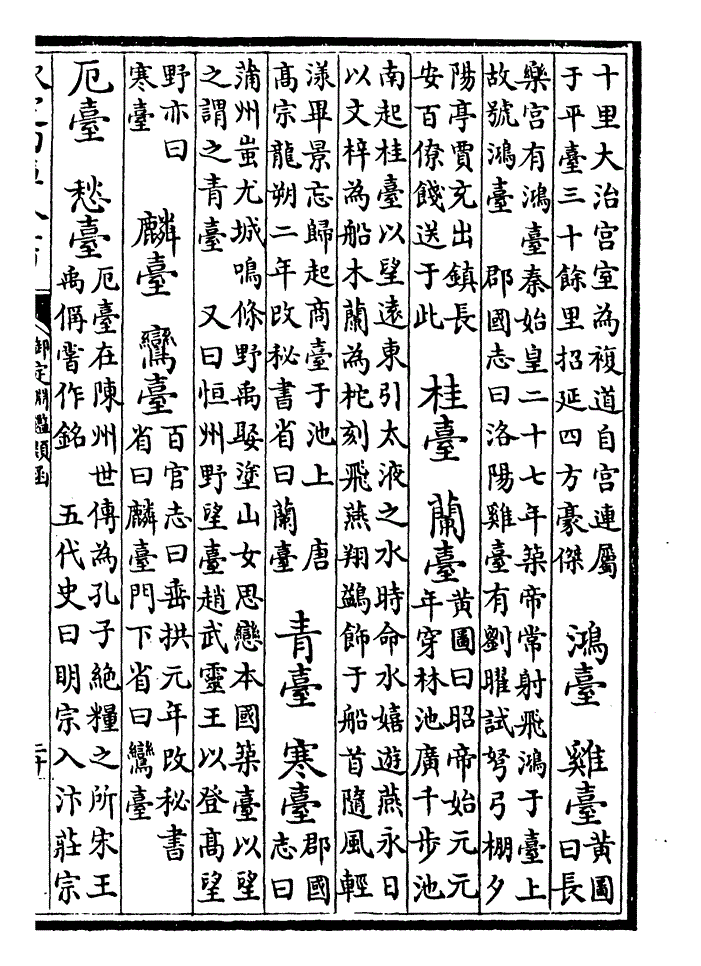 十里大治宫室為複道自宫連屬
于平臺三十餘里招延四方豪傑
鴻臺 雞臺
黃圖
曰長
樂宫有鴻臺秦始皇二十七年築帝常射飛鴻于臺上
故號鴻臺 郡國志曰洛陽雞臺有劉曜試弩弓棚夕
陽亭賈充出鎮長
安百僚餞送于此
桂臺 蘭臺
黃圖曰昭帝始元元
年穿林池廣千步池
南起桂臺以望遠東引太液之水時命水嬉遊燕永日
以文梓為船木蘭為柁刻飛燕翔鷁飾于船首隨風輕
漾畢景忘歸起商臺于池上 唐
高宗龍朔二年改秘書省曰蘭臺
青臺 寒臺
郡國
志曰
蒲州蚩尤城鳴條野禹娶塗山女思戀本國築臺以望
之謂之青臺 又曰恒州野望臺趙武靈王以登高望
野亦曰
寒臺
麟臺 鸞臺
百官志曰垂拱元年改秘書
省曰麟臺門下省曰鸞臺
厄臺 愁臺
厄臺在陳州世傳為孔子絶糧之所宋王
禹偁嘗作銘 五代史曰明宗入汴莊宗
御定淵鑑類函